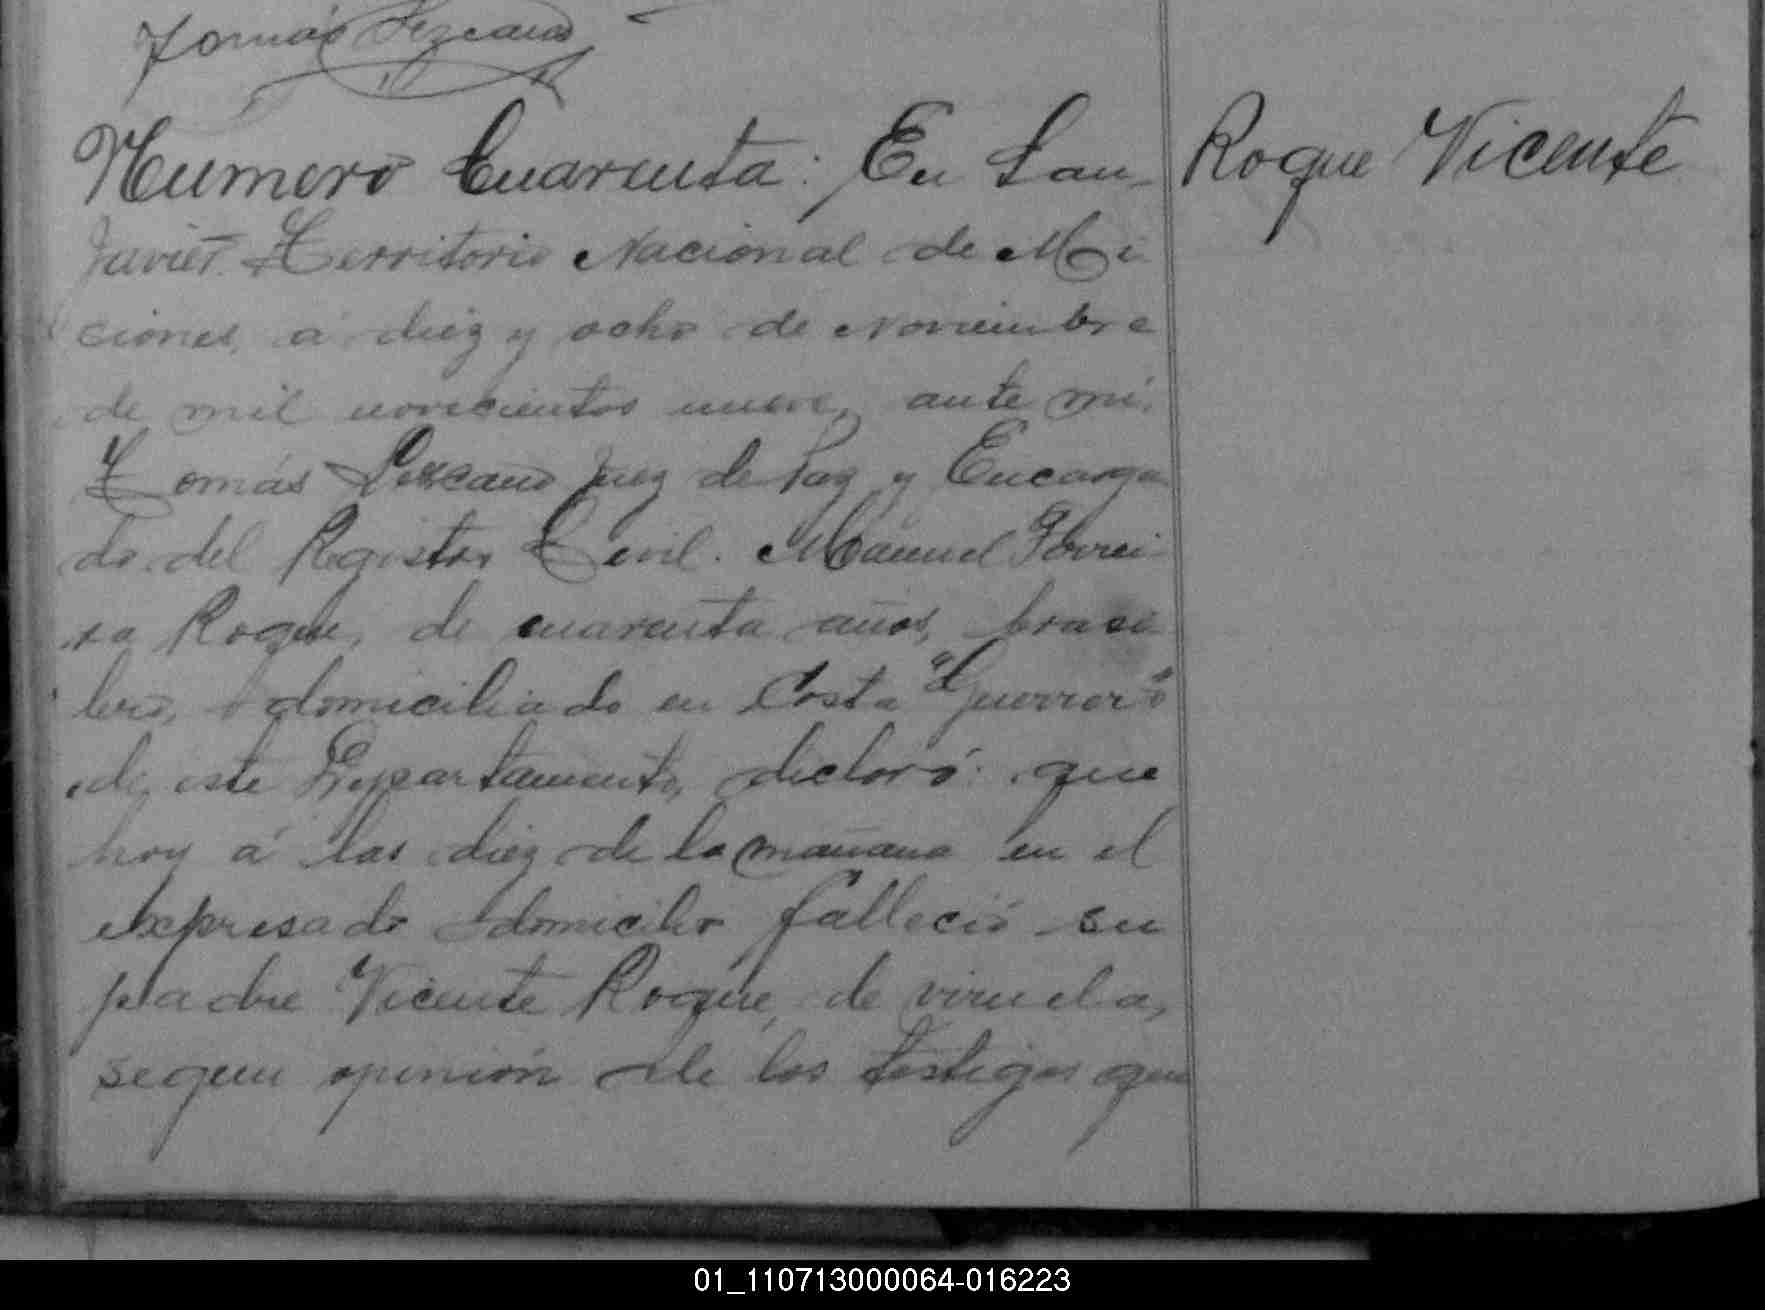 Tomás Lezcano
Numero Cuarenta: En San
Roque Vicente
Javier Territorio Nacional de Mi
ciones, á diez y ocho de Noviembre
de mil novecientos nueve, ante mi,
Tomás Lezcano Juez de Paz y Encarga
do del Registro Civil. Manuel Porrei
ra Roque, de cuarenta años, brasi
lero, domiciliado en Costa "Guerrero"
de este Departamento, declaró: que
hoy á las diez de la mañana en el
expresado domicilio falleció su
padre Vicente Roque, de viruela,
segun opinión de los testigos que
01_110713000064-016223